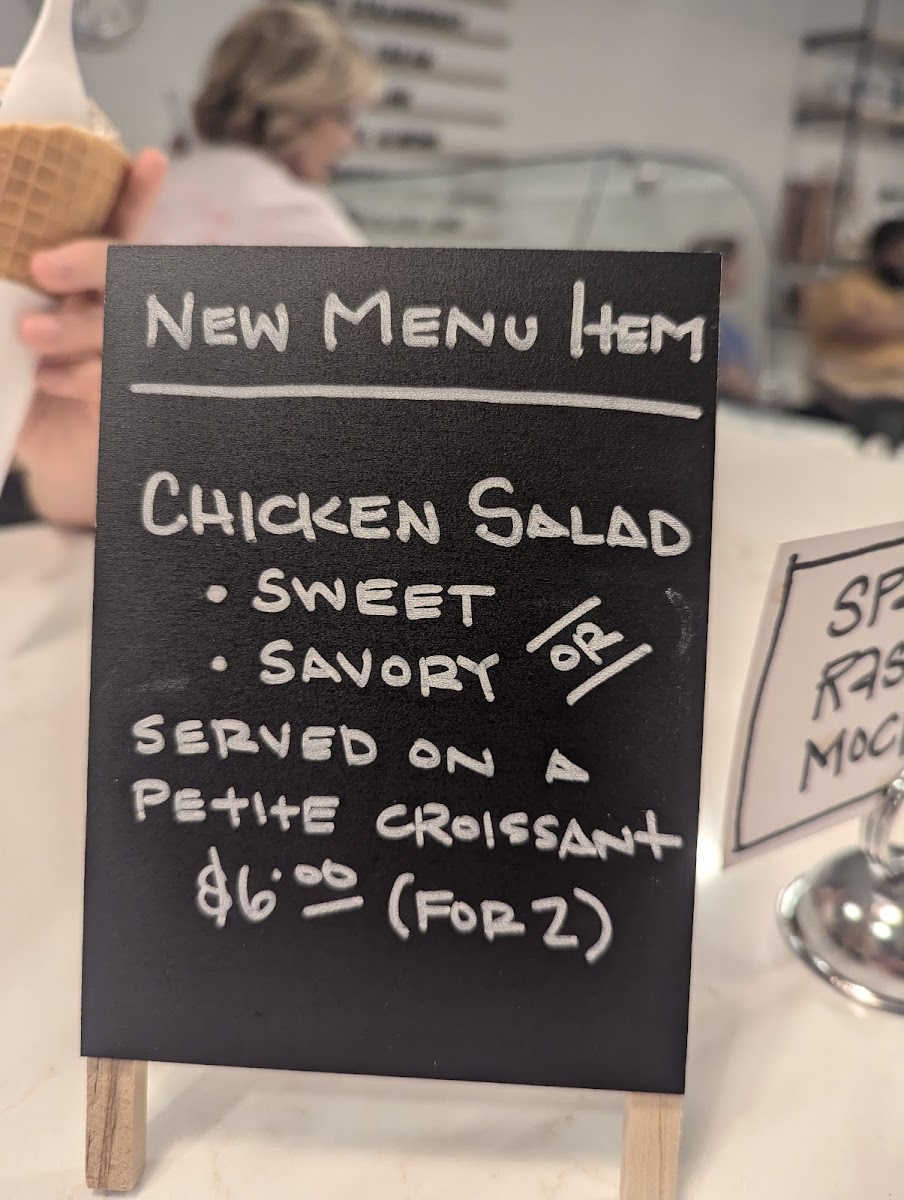 NEW MENU ITEM
CHICKEN SALAD
• SWEET
OR
• SAVORY
SERVED ON A
PETITE CROISSANT
$6.00 (FOR 2)
MOC